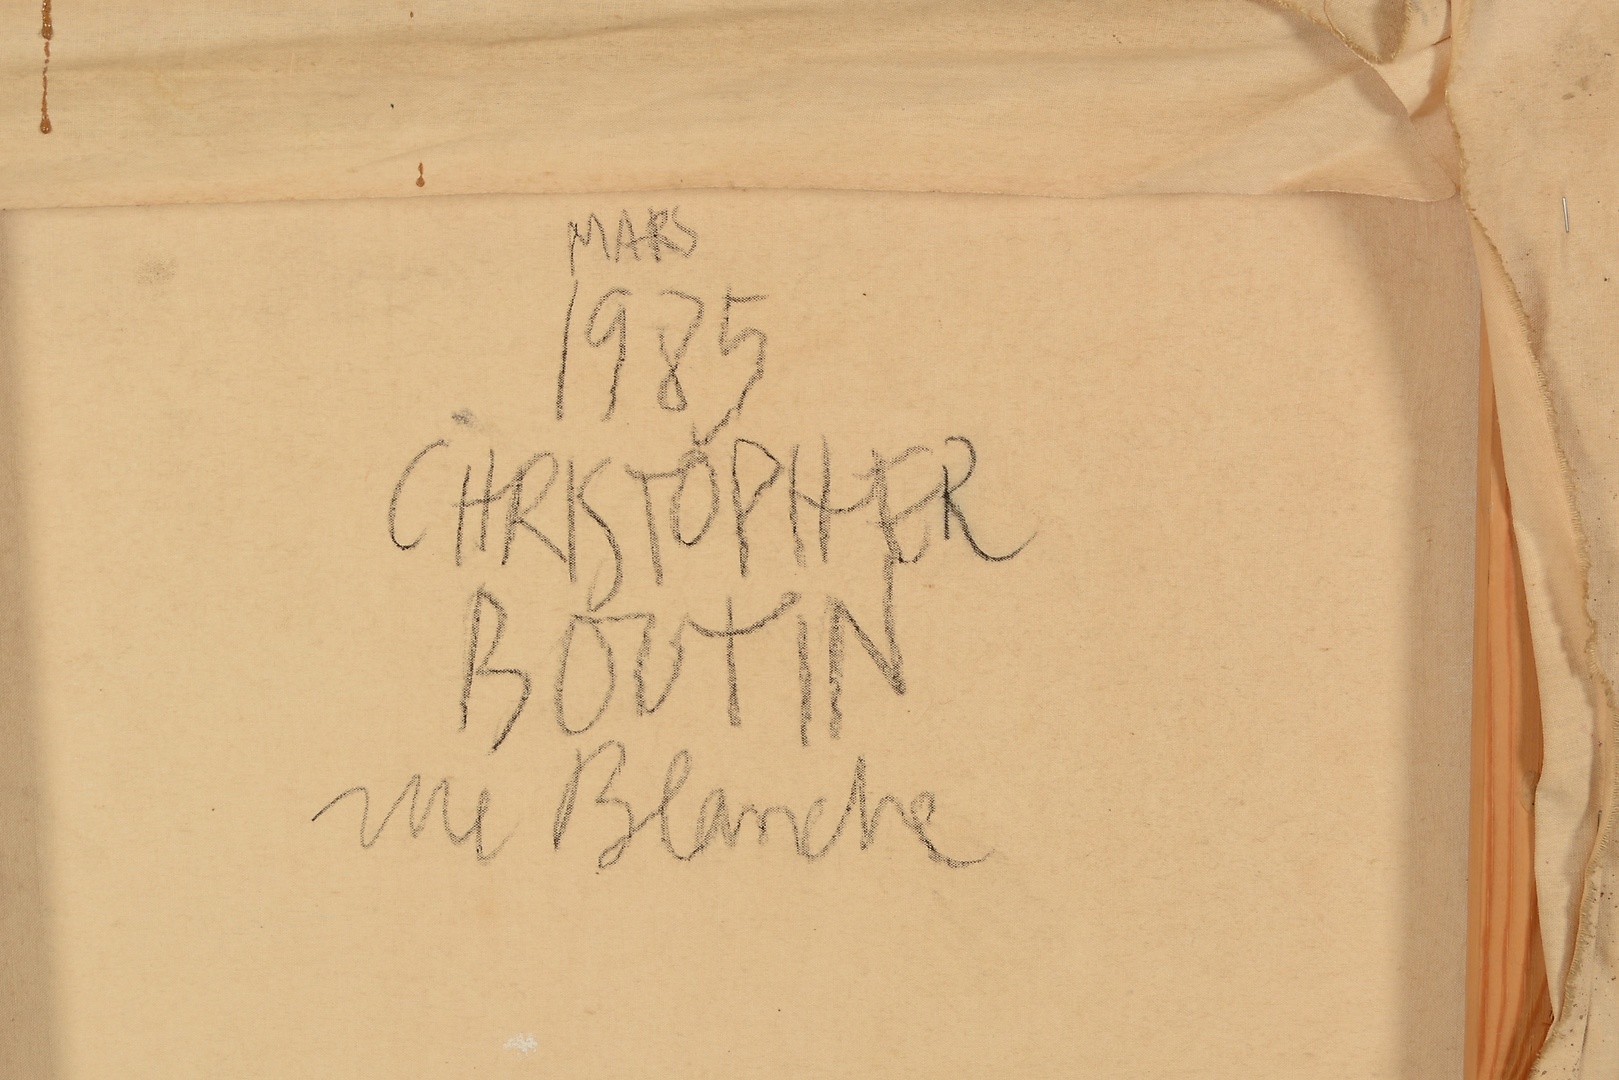 MARS
1985
CHRISTOPHER
BOUTIN
rue Blanche